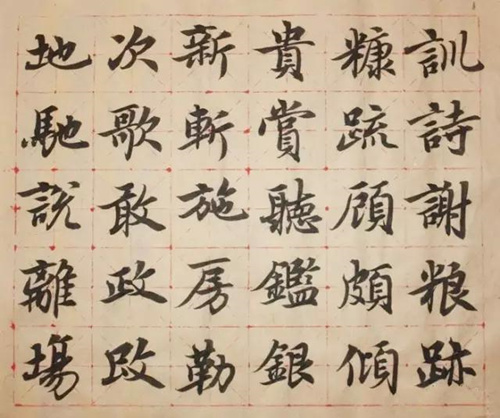 訓詩謝粮跡
糠疏頋頗傾
貴賞聽鑑銀
新斬施房勒
次歌敢政改
地馳説離場